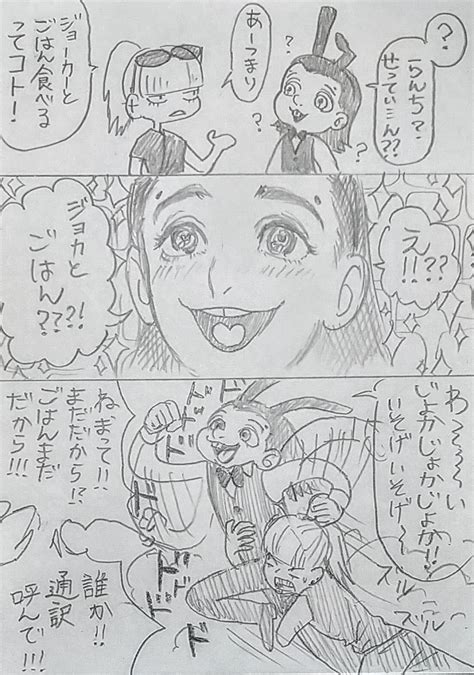 ？
らんち？
せってぃんん??
あーつまり
ジョーカーと
ごはん食べる
ってコト！
え!!??
ジョカと
ごはん????!
わってぅぅい
じょかじょか!!
いそげいそげ〜
ズル
ズル
ドドド
ドドド
ねまって!!
まだだから!?
ごはんまだ
だから!!!
誰か!!
通訳
呼んで!!!